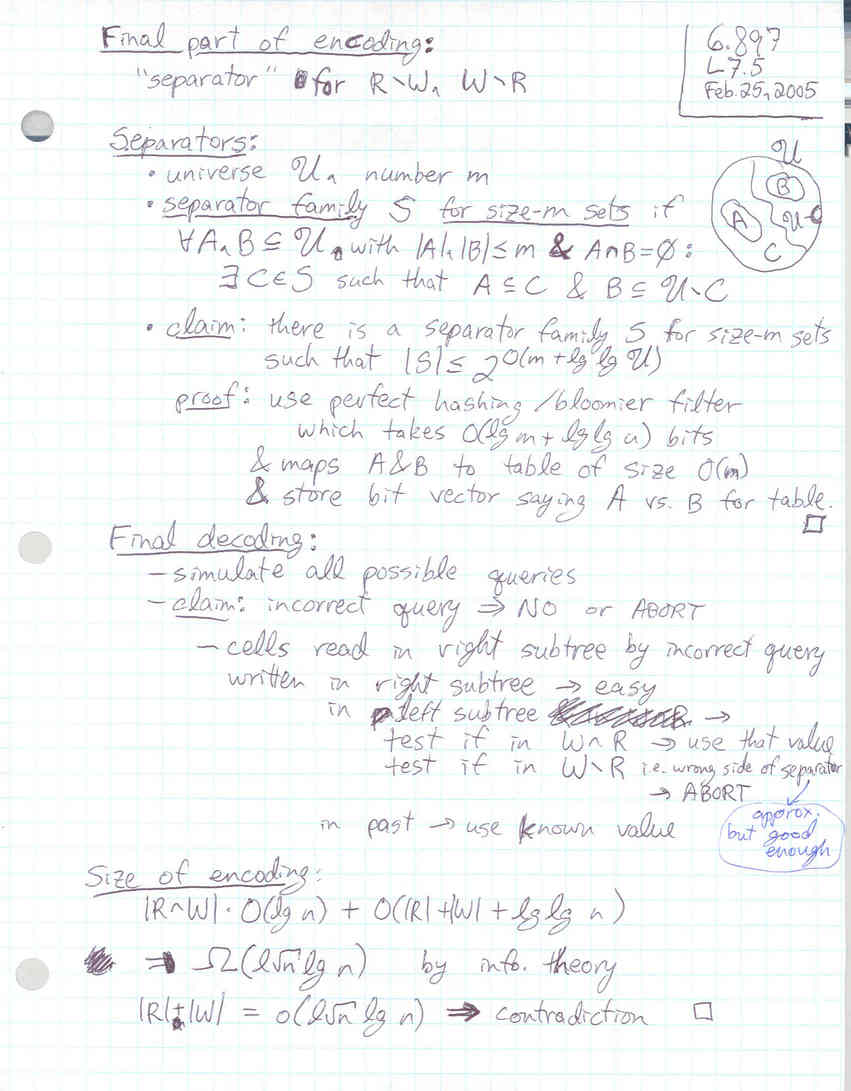 Final part of encoding:
"separator" for R∖W, W∖R
6.897
L7.5
Feb. 25, 2005
Separators:
• universe U, number m
• separator family S for size-m sets if
∀A,B⊆U, with |A|,|B|≤m & A∩B=∅:
∃C∈S such that A⊆C & B⊆U∖C
U
B
A
U-C
C
• claim: there is a separator family S for size-m sets
such that |S| ≤ 2^O(m + lg lg U)
proof: use perfect hashing/bloomier filter
which takes O(lg m + lg lg u) bits
& maps A&B to table of size O(m)
& store bit vector saying A vs. B for table.
□
Final decoding:
– simulate all possible queries
– claim: incorrect query ⇒ NO or ABORT
– cells read in right subtree by incorrect query
written in right subtree → easy
in left subtree →
test if in W∩R → use that value
test if in W∖R i.e. wrong side of separator
→ ABORT
approx.
but good
enough
in past → use known value
Size of encoding:
|R∩W|·O(lg n) + O(|R|+|W| + lg lg n)
⇒ Ω(l√n lg n) by info. theory
|R|+|W| = o(l√n lg n) ⇒ contradiction □